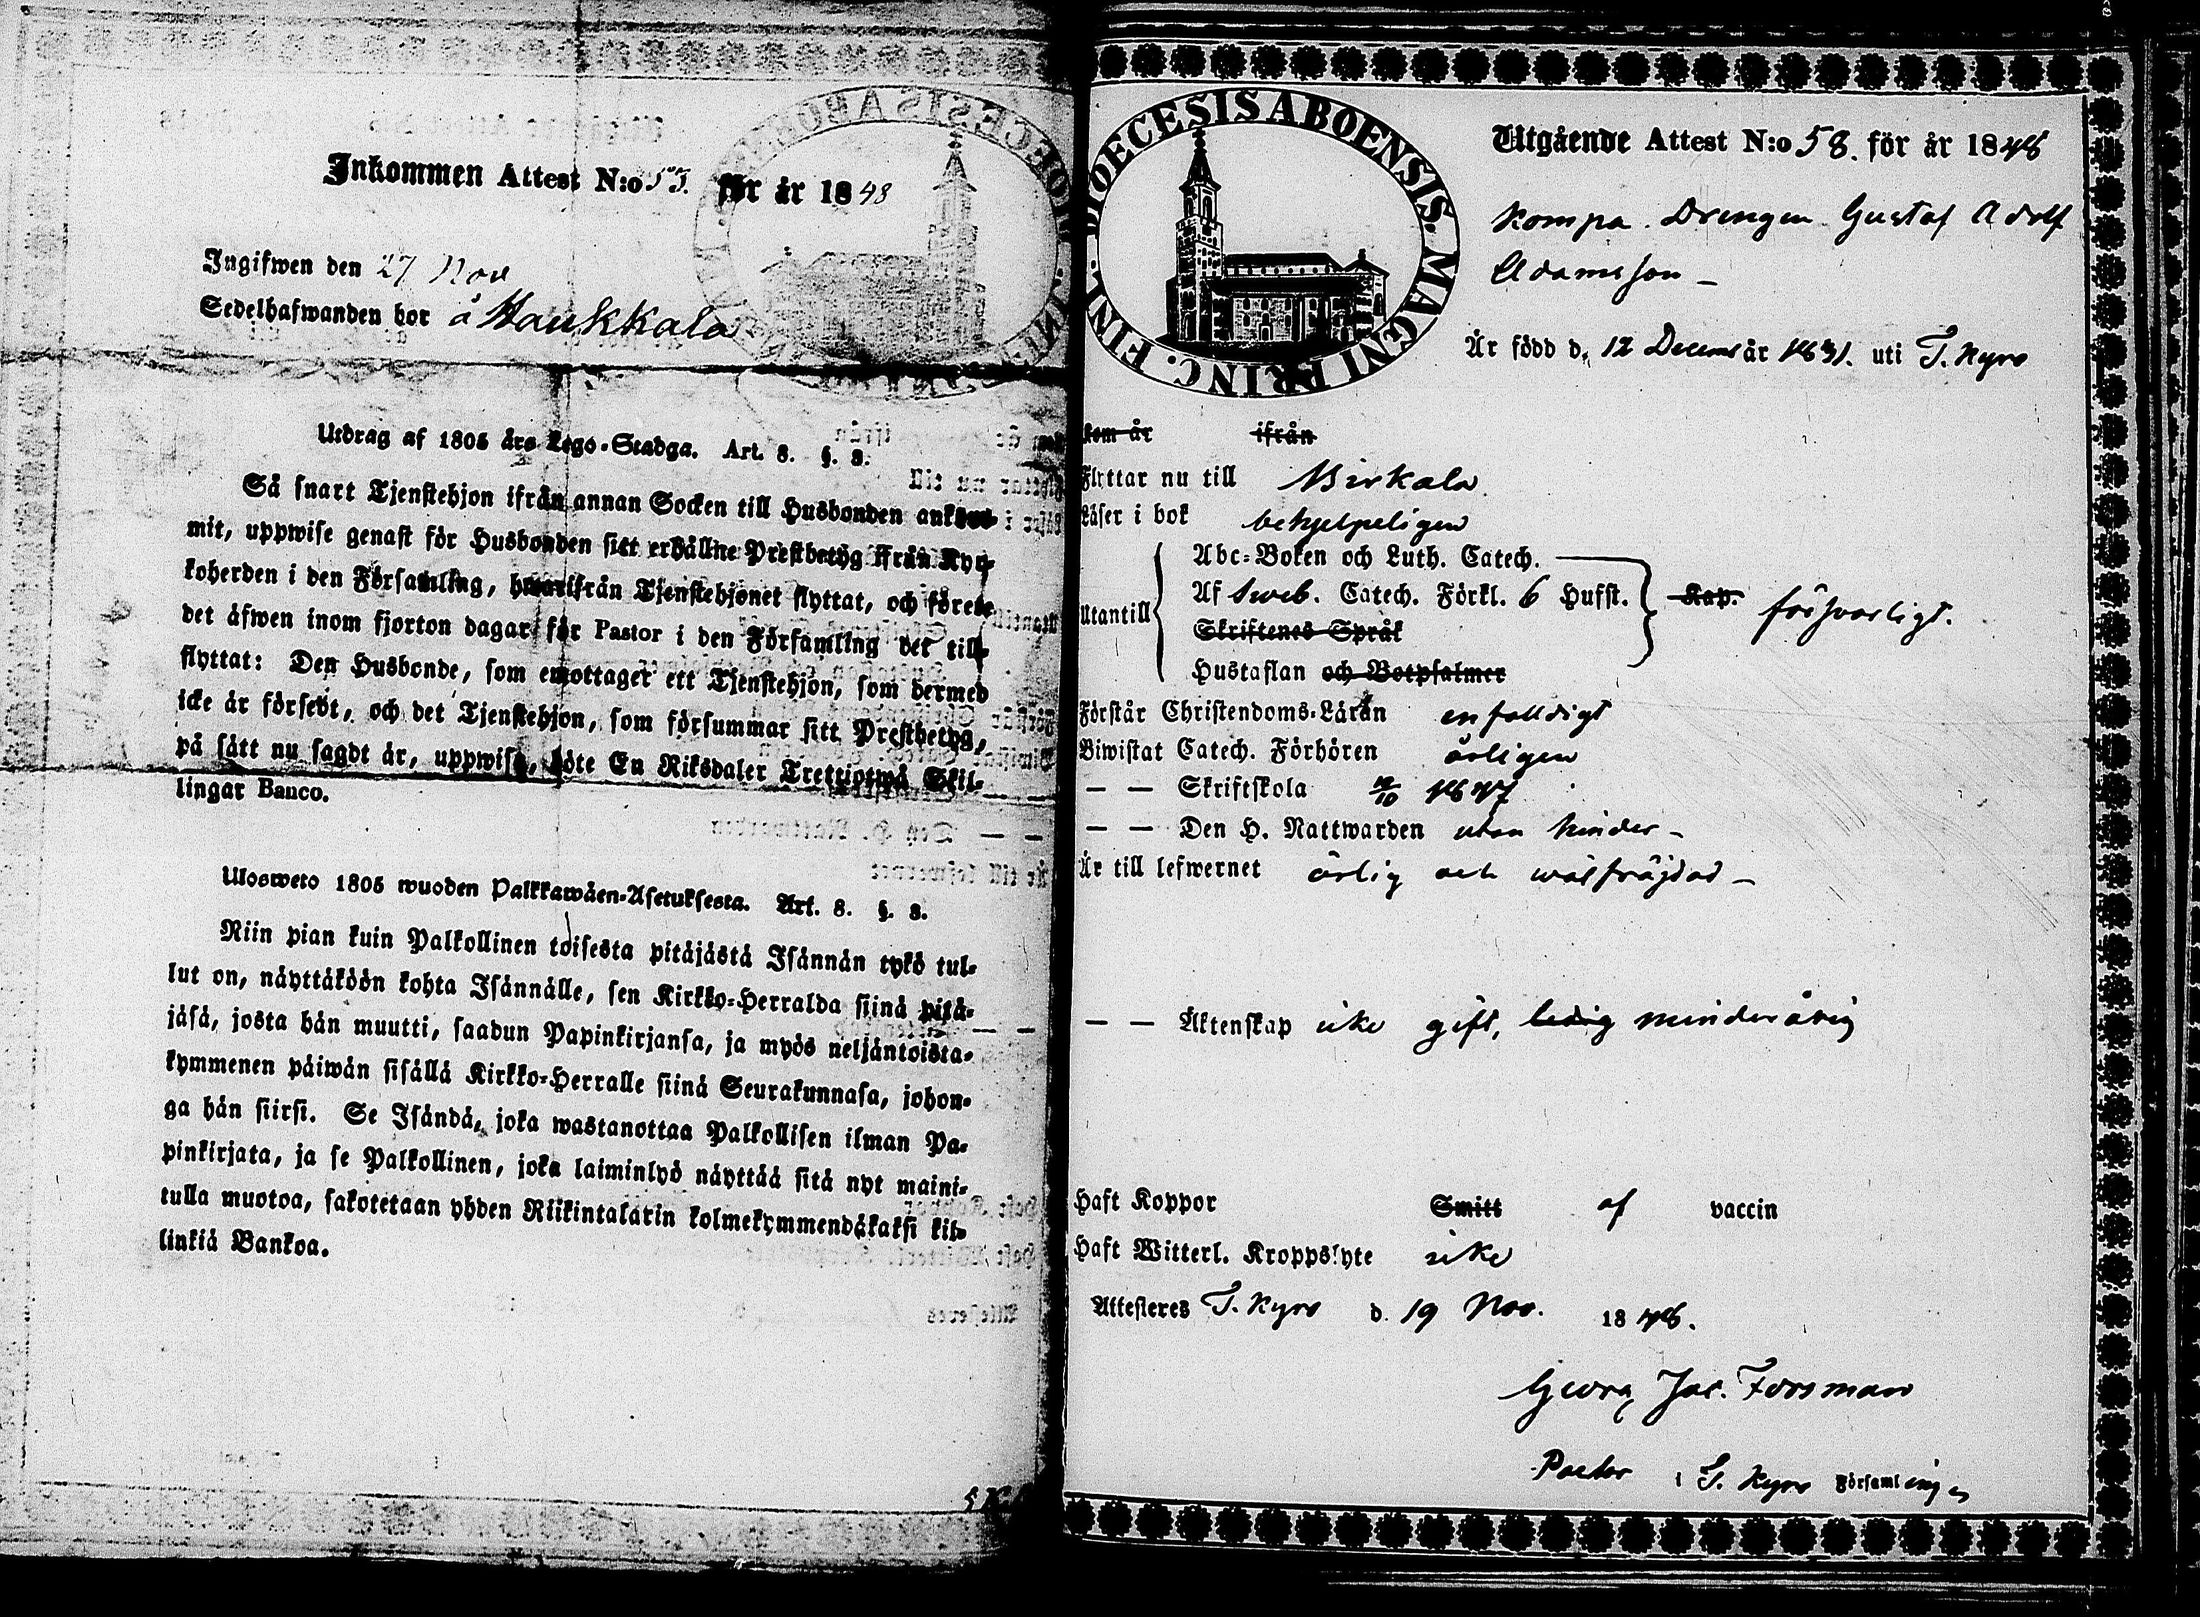 Inkommen Attest N:o 53. för år 1848
Ingifwen den 27 Nov
Sedelhafwanden bor å Haukkala
Utdrag af 1805 års Lego-Stadga. Art. 8. §. 3.
Så snart Tjenstehjon ifrån annan Socken till Husbonden ankom-
mit, uppwise genast för Husbonden sitt erhållne Prestbetyg ifrån Kyr-
koherden i den Församling, hwarifrån Tjenstehjonet flyttat, och förete
det äfwen inom fjorton dagar för Pastor i den Församling det till-
flyttat: Den Husbonde, som emottager ett Tjenstehjon, som dermed
icke är försedt, och det Tjenstehjon, som försummar sitt Prestbetyg,
på sätt nu sagdt är, uppwisa, böte En Riksdaler Trettiotwå Skil-
lingar Banco.
Ulosweto 1805 wuoden Palkkawäen-Asetuksesta. Art. 8. §. 3.
Niin pian kuin Palkollinen toisesta pitäjästä Isännän tykö tul-
lut on, näyttäköön kohta Isännälle, sen Kirkko-Herralda siinä pitä-
jäsä, josta hän muutti, saadun Papinkirjansa, ja myös neljäntoista-
kymmenen päiwän sisällä Kirkko-Herralle siinä Seurakunnasa, johon-
ga hän siirsi. Se Isändä, joka wastanottaa Palkollisen ilman Pa-
pinkirjata, ja se Palkollinen, joka laiminlyö näyttää sitä nyt maini-
tulla muotoa, sakotetaan yhden Riikintalarin kolmekymmendäkaksi kil-
linkiä Bankoa.
DIOECESIS ABOENSIS. MAGNI PRINC. FINL.
Utgående Attest N:o 58. för år 1848
Kompa. Drengen Gustaf Adolf
Adamsson
Är född d. 12 Decemb år 1831. uti T. Kyro
kom år ifrån
Flyttar nu till Birkala
Läser i bok behjelpeligen
Abc-Boken och Luth. Catech.
Utantill Af Sweb. Catech. Förkl. 6 Hufst. Kap. försvarligt.
Skriftenes Språk
Hustaflan och Botpsalmer
Förstår Christendoms-Läran enfaldigt
Biwistat Catech. Förhören årligen
— — Skriftskola 1847
— — Den H. Nattwarden utan hinder
Är till lefwernet ärlig och wälfräjdad
— — Äktenskap icke gift, ledig minderårig
Haft Koppor Smitt af vaccin
Haft Witterl. Kroppslyte icke
Attesteres T. Kyro d. 19 Nov. 1848.
Georg Jac. Forsman
Pastor i T. Kyro Församlingen